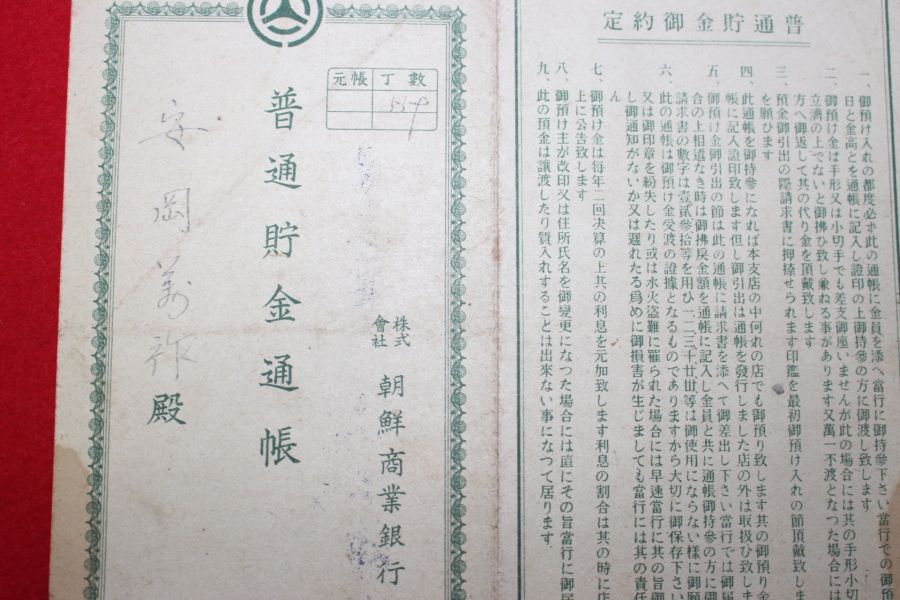 普通貯金御約定
一、御預け入れの都度必ず此の通帳に金員を添へ當行に御持參下さい當行での御預
日と金高とを通帳に記入し證印の上御持參の方に御渡し致します
二、御預け金は手形又は小切手でも差支御座いませんが此の場合には其の手形小切
立濟の上でないと御拂ひ致し兼ねる事があります又萬一不渡となつた場合には
方へ御返して其の代り金を頂戴致します
三、預金御引出の際請求書に押捺せられます印鑑を最初御預け入れの節頂戴致しま
を願ひます
四、此通帳を御持參になれば本支店の中何れの店でも御預り致します其の御預り金
帳に記入證印致します但し御引出は通帳を發行しました店の外は取扱ひ致しま
五、御預け金御引出の節は此の通帳に請求書を添へて御差出し下さい當行では御屆
合の上相違なき時は御拂戾金額を通帳に記入し金員と共に通帳御持參の方に御
請求書の數字は壹貳參拾等を用ひ一二三十廿卅等は御使用にならない樣に御願
六、此の通帳は御預け金受渡の證據となるものでありますから大切に御保存下さい
又は御印章を紛失したり或は水火盜難に罹られた場合には早速當行に其の旨御
し御通知がないか又は遲れたる爲めに御損害が生じましても當行には其の責任
ん
七、御預け金は每年二回決算の上其の利息を元加致します利息の割合は其の時に店
上に公告致します
八、御預け主が改印又は住所氏名を御變更になつた場合には直にその旨當行に御屆
九、此の預金は讓渡したり質入れすることは出來ない事になつて居ります
元帳丁數
普通貯金通帳
株式會社 朝鮮商業銀行
安岡萬祚殿